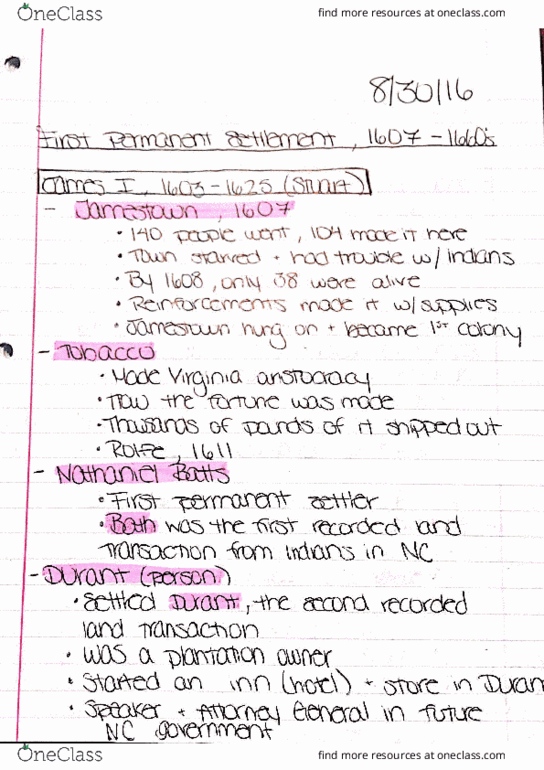 OneClass find more resources at oneclass.com
8/30/16
First Permanent Settlement, 1607 - 1660's
James I, 1603 - 1625 (Stuart)
- Jamestown, 1607
• 140 people went, 104 made it here
• Town starved + had trouble w/ indians
• By 1608, only 38 were alive
• Reinforcements made it w/ supplies
• Jamestown hung on + became 1st colony
- Tobacco
• Made Virginia aristocracy
• How the fortune was made
• Thousands of pounds of it shipped out
• Rolfe, 1611
- Nathaniel Batts
• First permanent settler
• Bath was the first recorded land
transaction from indians in NC
- Durant (person)
• Settled Durant, the second recorded
land transaction
• was a plantation owner
• Started an inn (hotel) + store in Duran
• Speaker + Attorney General in future
NC government
OneClass find more resources at oneclass.com